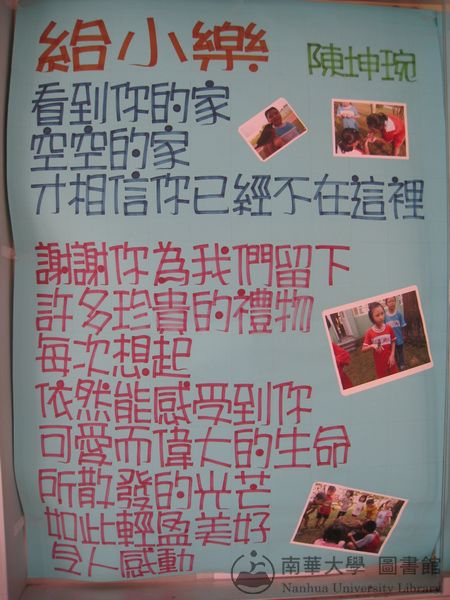 給小樂
陳坤琬
看到你的家
空空的家
才相信你已經不在這裡
謝謝你為我們留下
許多珍貴的禮物
每次想起
依然能感受到你
可愛而偉大的生命
所散發的光芒
如此輕盈美好
令人感動
南華大學 圖書館
Nanhua University Library